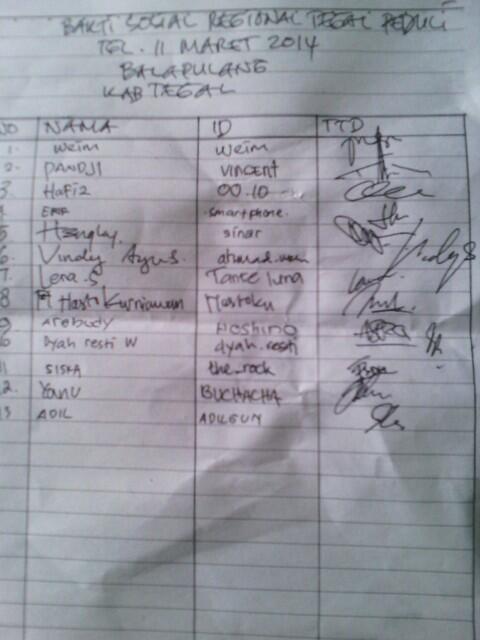 BAKTI SOSIAL REGIONAL TEGAL PEDULI
TGL. 11 MARET 2014
BALAPULANG
KAB TEGAL
NO NAMA ID TTD
1. weim weim
2. DANDJI VINCENT
3. Hafiz 00.10
4 ERF smartphone.
5 sinar
6. Vindy Agus.
7. Lena.S Tance luna
8 Hasto Kurniawan Mastoku
9 Arebudy Hoshino
10 Dyah resti W dyah.resti
11 SISKA the_rock
12. YANU BUCHACHA
13 ADIL ADILGUN